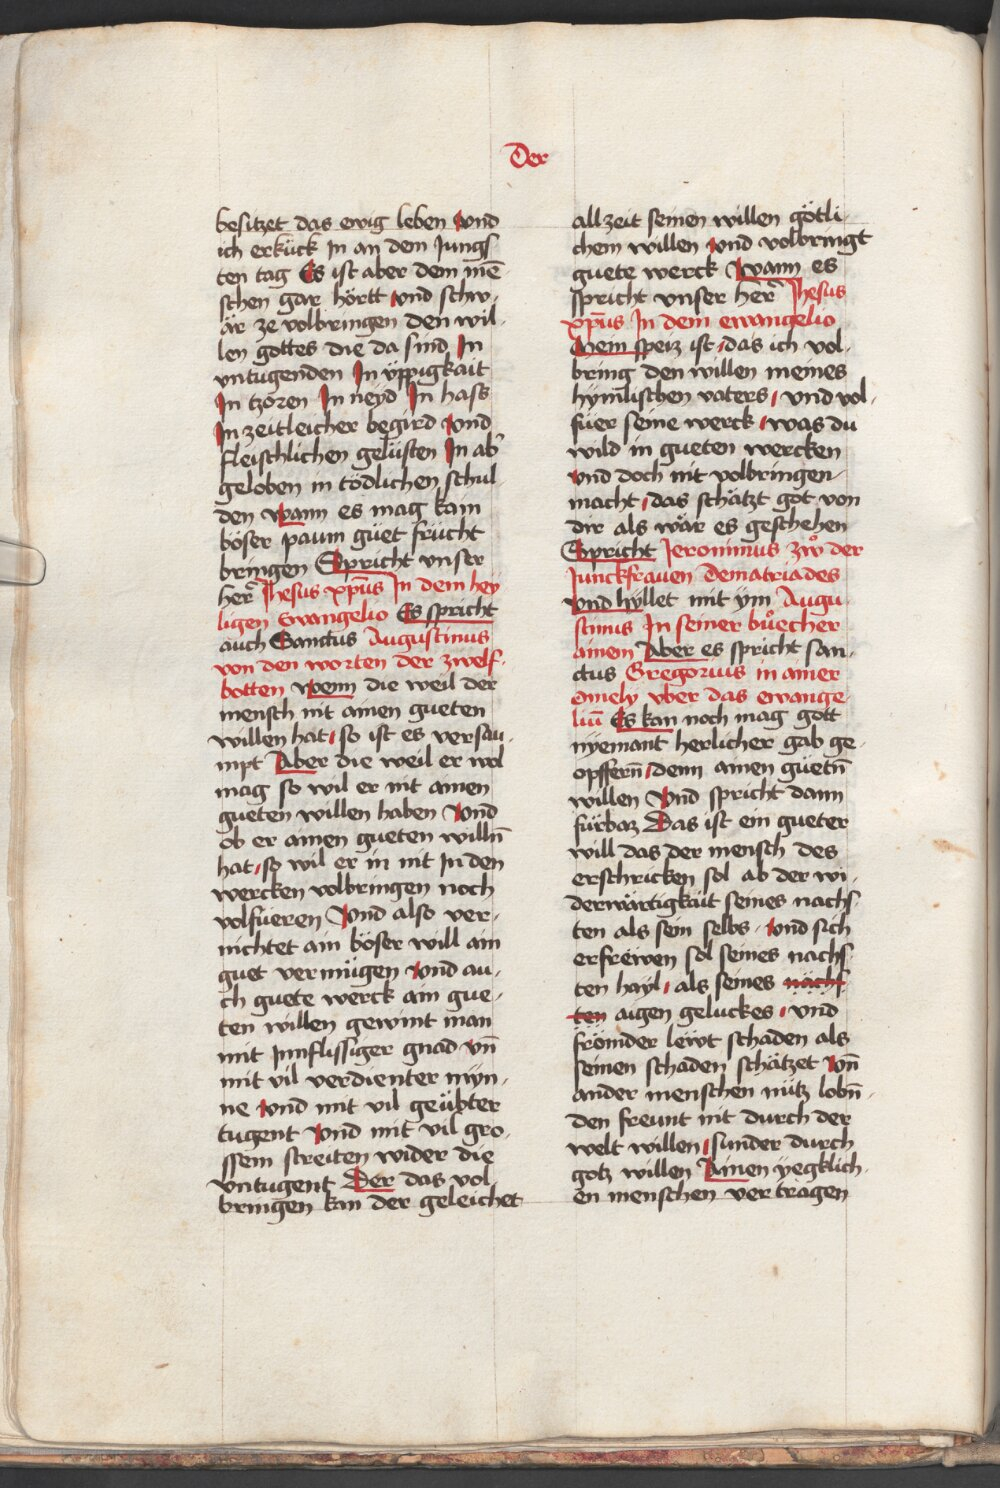 Der
besitzet das ewig leben Vnd
ich erkück In an dem Jungs
ten tag Es ist aber dem mē
schen gar hörtt vnd schw,
är ze volbringen den wil-
len gottes die da sind In
vntugenden In üppigkait
In tzoren In neyd In hass
In zeitleicher begird Vnd
fleischlichen gelüsten In ab
geloben in tödlichen schul-
den wann es mag kain
böser paum güet frücht
bringen Spricht vnser
herr Jhesus xp̄us In dem hey
ligen Ewangelio Es spricht
auch Sanctus Augustinus
von den worten der zwelf-
botten wenn die weil der
mensch nit ainen gueten
willen hat, so ist es versau-
mpt Aber die weil er wol
mag so wil er nit ainen
gueten willen haben Vnd
ob er ainen gueten willn̄
hat, so wil er in nit In den
wercken volbringen noch
volfüeren Vnd also ver-
nichtet ain böser will ain
guet vermügen Vnd au-
ch guete werck ain gue-
ten willen gewint man
mit Innflissiger gnad vn̄
mit vil verdienter myn-
ne Vnd mit vil geübter
tugent Vnd mit vil gro-
ssem streiten wider die
vntugent Der das vol
bringen kan der geleichet
allzeit seinen willen götli-
chem willen Vnd volbringt
guete werck Wann es
spricht vnser herr Jhesus
xp̄us In dem ewangelio
Mein speiz ist, das ich vol-
bring den willen meines
hym̄lischen vaters, vnd vol-
füer seine werck, was du
wild in gueten wercken
Vnd doch nit volbringen-
macht, das schätzt got von
dir als wär es geschehen
Spricht Jeronimus zwͦ der
Junckfrauen Dematriades
Vnd hyllet mit ym Augu-
stinus In seiner bůecher
ainem Aber es spricht san-
ctus Gregorius in ainer
omely vber das ewange-
liū Es kan noch mag gott
nyemant herlicher gab ge-
opffern̄, denn ainen güetn̄
willen Vnd spricht dann
fürbaz Das ist ein gueter
will das der mensch des
erschricken sol ab der wi-
derwärtigkait seines nachs-
ten als sein selbs. Vnd sich
erfrëwen sol seines nachs-
ten hayl, als seines nächs-
ten aigen geluckes, vnd
frömder lëwt schaden als
seinen schaden schätzet Vn̄
ander menschen nütz lobn̄-
den freunt nit durch der
welt willen, sunder durch
gotz willen Ainen yegklich-
en menschen vertragen